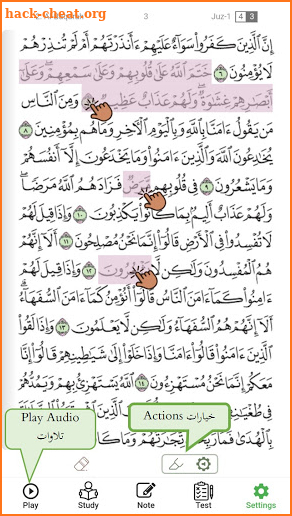 hack-cheat.org
3
Juz-1 4 3
إِنَّ ٱلَّذِينَ كَفَرُوا۟ سَوَآءٌ عَلَيْهِمْ ءَأَنذَرْتَهُمْ أَمْ لَمْ تُنذِرْهُمْ
لَا يُؤْمِنُونَ ٦ خَتَمَ ٱللَّهُ عَلَىٰ قُلُوبِهِمْ وَعَلَىٰ سَمْعِهِمْ ۖ وَعَلَىٰٓ
أَبْصَٰرِهِمْ غِشَٰوَةٌ ۖ وَلَهُمْ عَذَابٌ عَظِيمٌ وَمِنَ ٱلنَّاسِ
مَن يَقُولُ ءَامَنَّا بِٱللَّهِ وَبِٱلْيَوْمِ ٱلْءَاخِرِ وَمَا هُم بِمُؤْمِنِينَ ٨
يُخَٰدِعُونَ ٱللَّهَ وَٱلَّذِينَ ءَامَنُوا۟ وَمَا يَخْدَعُونَ إِلَّآ أَنفُسَهُمْ
وَمَا يَشْعُرُونَ ٩ فِى قُلُوبِهِم مَّرَضٌ فَزَادَهُمُ ٱللَّهُ مَرَضًا ۖ
وَلَهُمْ عَذَابٌ أَلِيمٌۢ بِمَا كَانُوا۟ يَكْذِبُونَ ١٠ وَإِذَا قِيلَ لَهُمْ
لَا تُفْسِدُوا۟ فِى ٱلْأَرْضِ قَالُوٓا۟ إِنَّمَا نَحْنُ مُصْلِحُونَ ١١ أَلَآ إِنَّهُمْ
هُمُ ٱلْمُفْسِدُونَ وَلَٰكِن لَّا ١٢ وَإِذَا قِيلَ لَهُمْ
ءَامِنُوا۟ كَمَآ ءَامَنَ ٱلنَّاسُ قَالُوٓا۟ أَنُؤْمِنُ كَمَآ ءَامَنَ ٱلسُّفَهَآءُ ۗ
أَلَآ إِنَّهُمْ هُمُ ٱلسُّفَهَآءُ وَلَٰكِن لَّا يَعْلَمُونَ ١٣ وَإِذَا لَقُوا۟
ٱلَّذِينَ ءَامَنُوا۟ قَالُوٓا۟ ءَامَنَّا وَإِذَا خَلَوْا۟ إِلَىٰ شَيَٰطِينِهِمْ قَالُوٓا۟ إِنَّا
مَعَكُمْ إِنَّمَا نَحْنُ مُسْتَهْزِءُونَ ١٤ ٱللَّهُ يَسْتَهْزِئُ بِهِمْ وَيَمُدُّهُمْ
فِى طُغْيَٰنِهِمْ
بِٱلْهُدَىٰ فَمَا رَبِحَت تِّجَٰرَتُهُمْ وَمَا
Play Audio
تلاوات
Actions خيارات
Play
Study
Note
Test
Settings